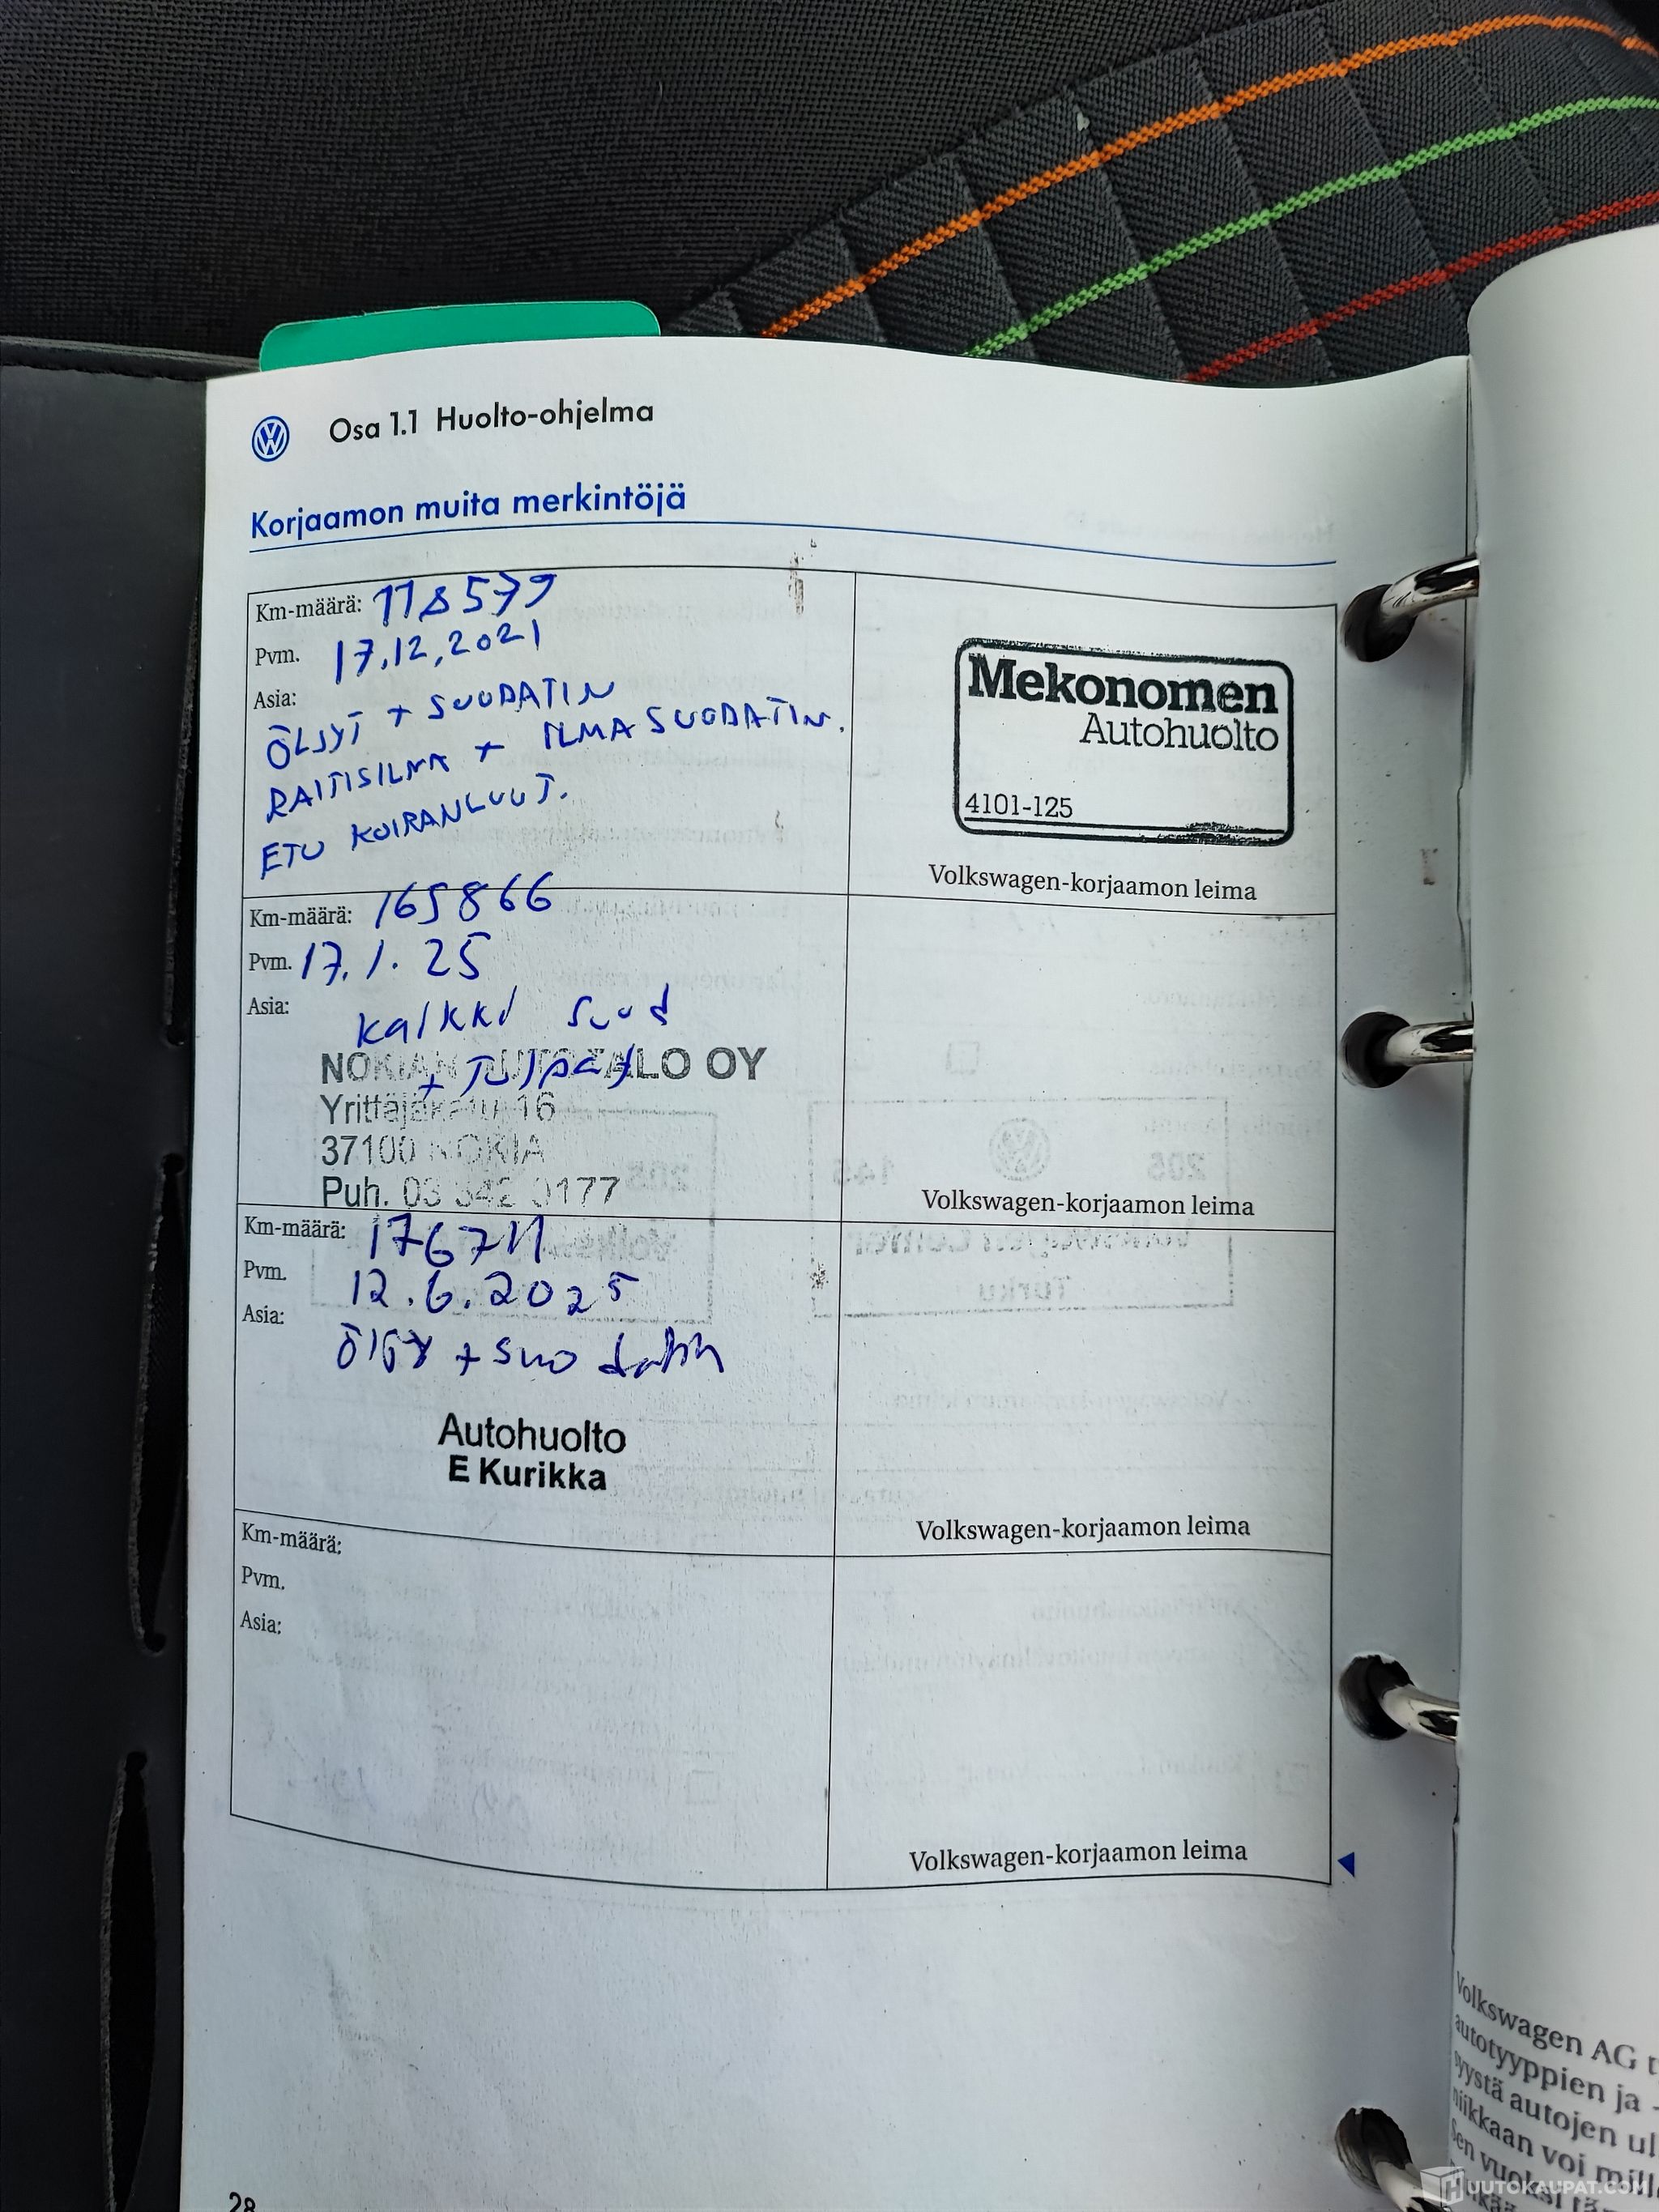 Osa 1.1 Huolto-ohjelma
Korjaamon muita merkintöjä
Km-määrä: 118579
Pvm. 17.12.2021
Asia:
ÖLJYT + SUODATIN
RAITISILMA + ILMASUODATIN.
ETU KOIRANLUUT.
Mekonomen
Autohuolto
4101-125
Volkswagen-korjaamon leima
Km-määrä: 165866
Pvm. 17.1.25
Asia:
kaikki suod
+ TulpAt
NOKIAN AUTOTALO OY
Yrittäjäkatu 16
37100 NOKIA
Puh. 03 342 0177
Volkswagen-korjaamon leima
Km-määrä: 176711
Pvm. 12.6.2025
Asia:
öljy + suodatin
Autohuolto
E Kurikka
Volkswagen-korjaamon leima
Km-määrä:
Pvm.
Asia:
Volkswagen-korjaamon leima
28
Volkswagen AG
autotyyppien ja
autojen
voi
HUUTOKAUPAT.COM